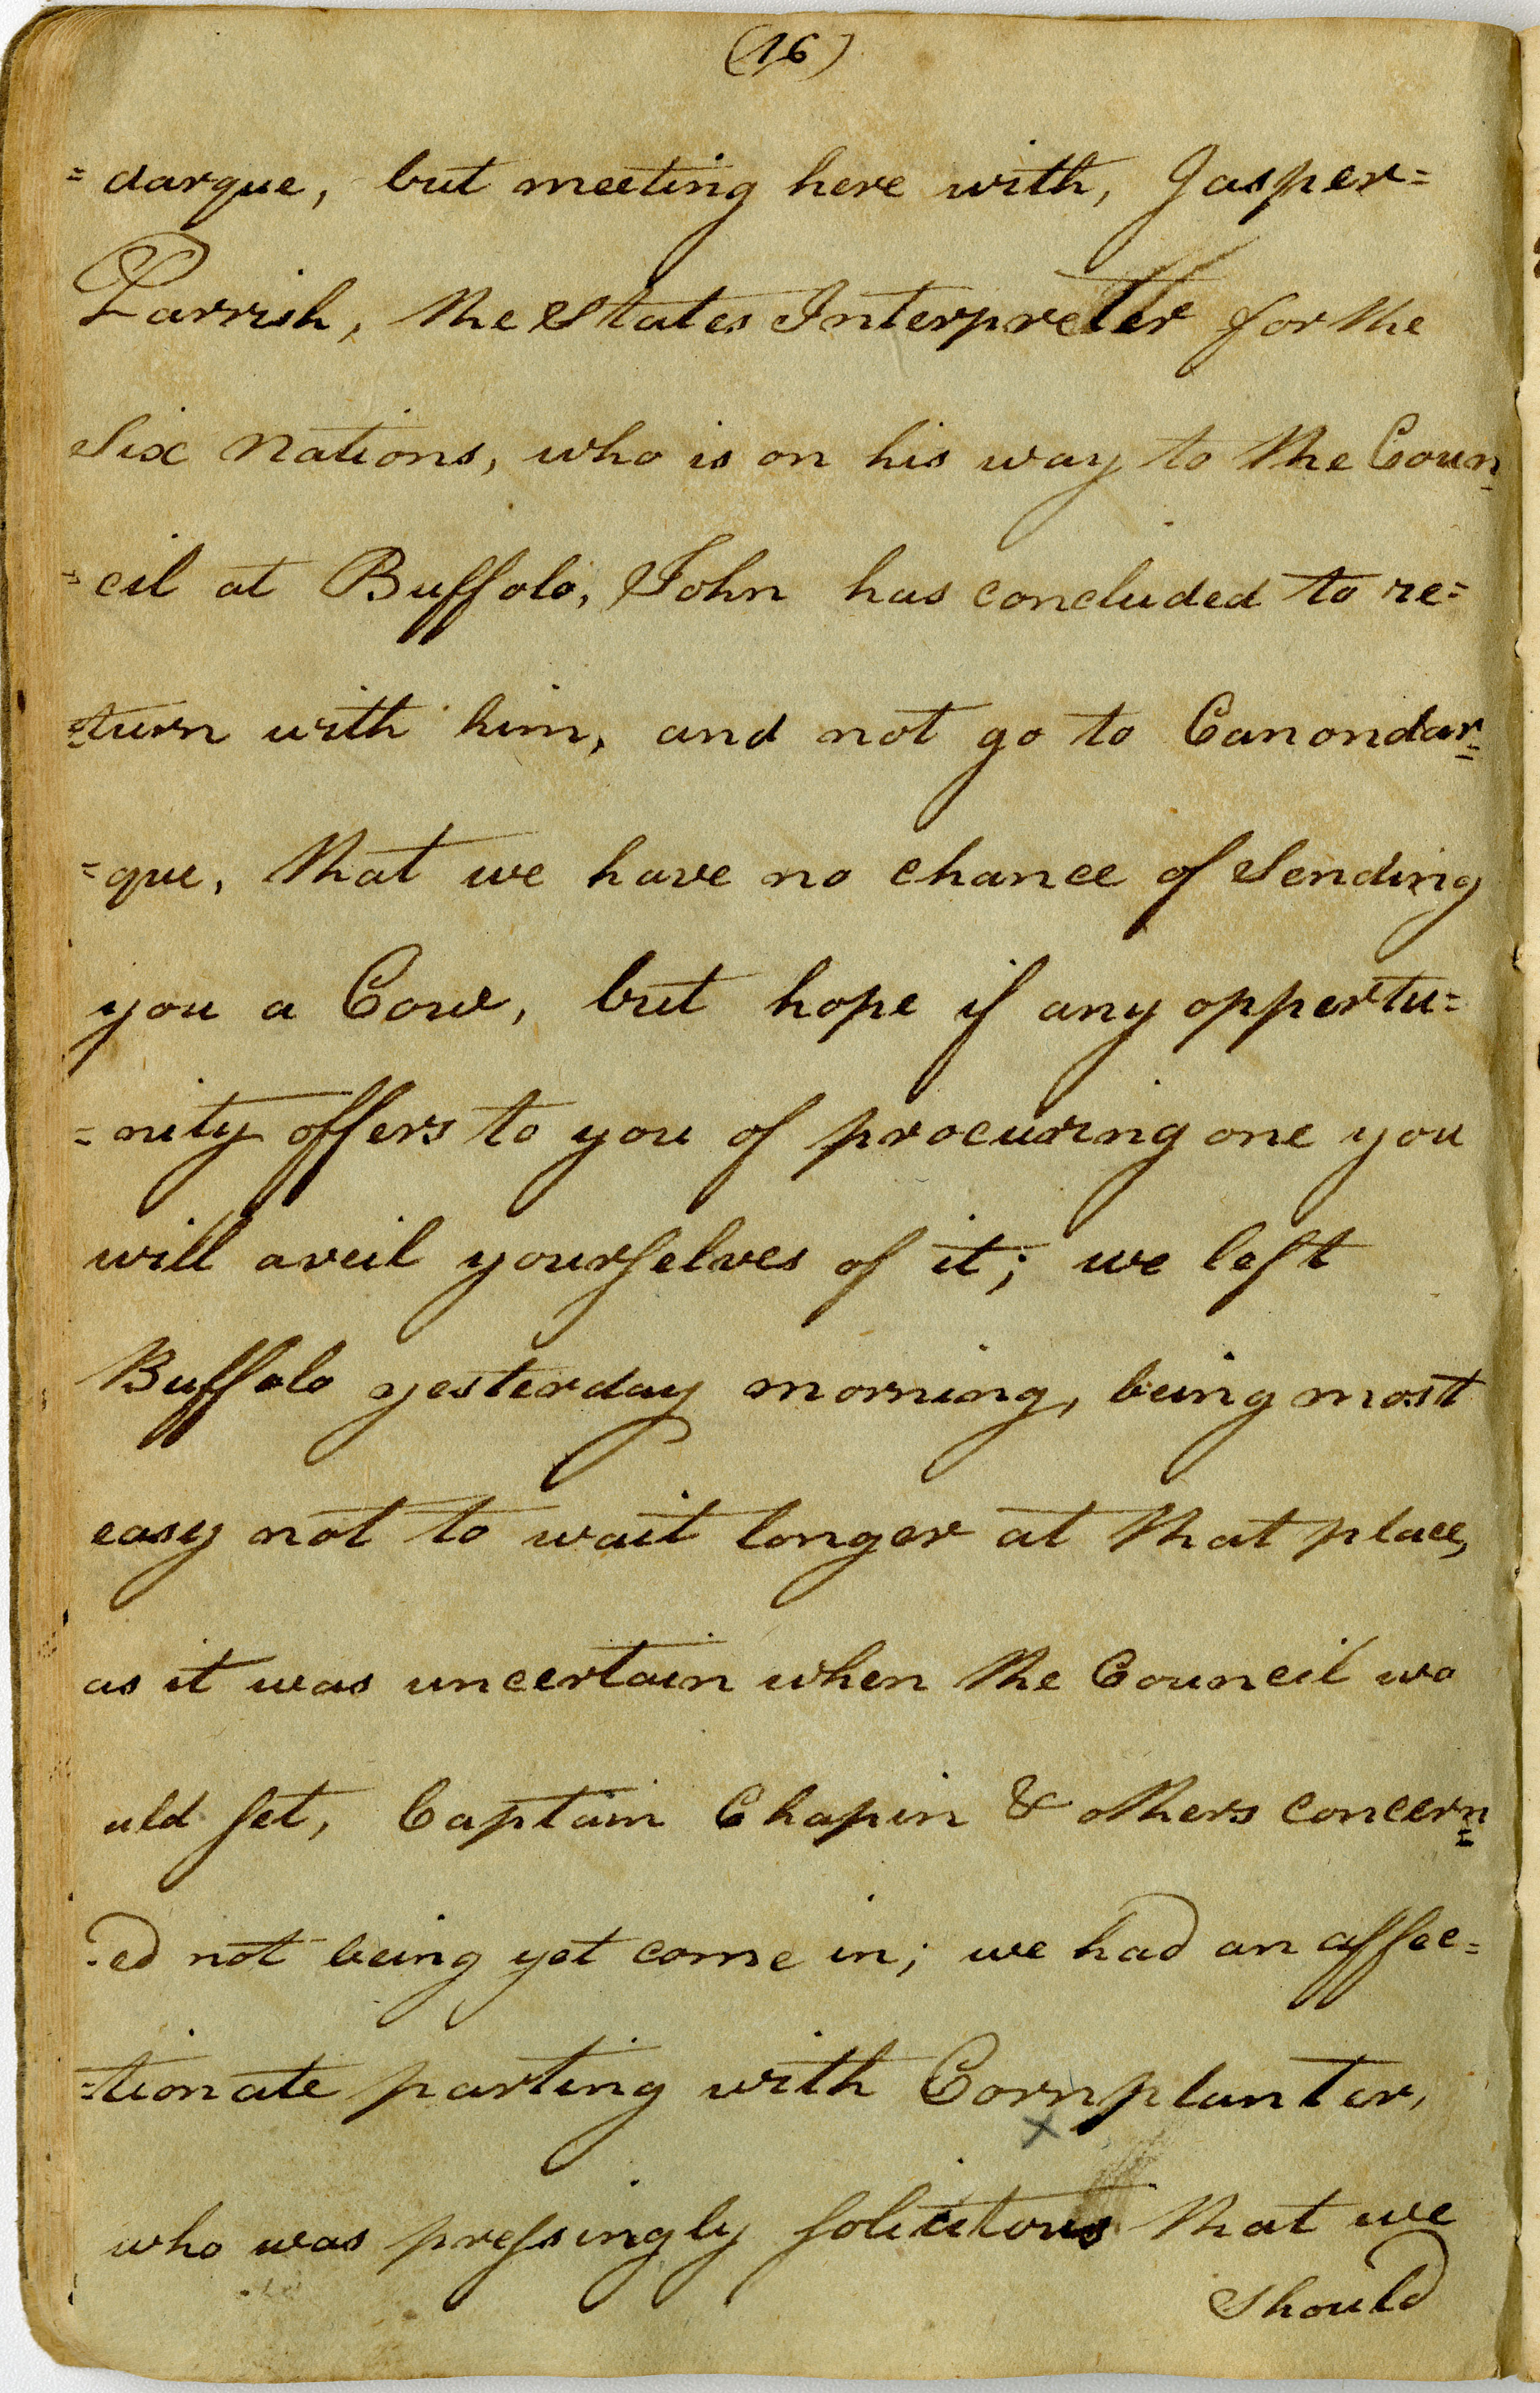 (16)
= darque, but meeting here with, Jasper=
Parrish, the States Interpreter for the
Six Nations, who is on his way to the Coun=
=cil at Buffolo, John has concluded to re=
=turn with him, and not go to Canondar=
=que, that we have no chance of Sending
you a Cow, but hope if any oppertu=
=nity offers to you of procuring one you
will aveil yourselves of it; we left
Buffolo yesterday morning, being most
easy not to wait longer at that place,
as it was uncertain when the Council wo
uld set, Captain Chapin & others concern=
=ed not being yet come in; we had an affec=
=tionate parting with Cornplanter,
x
who was pressingly solicitous that we
should